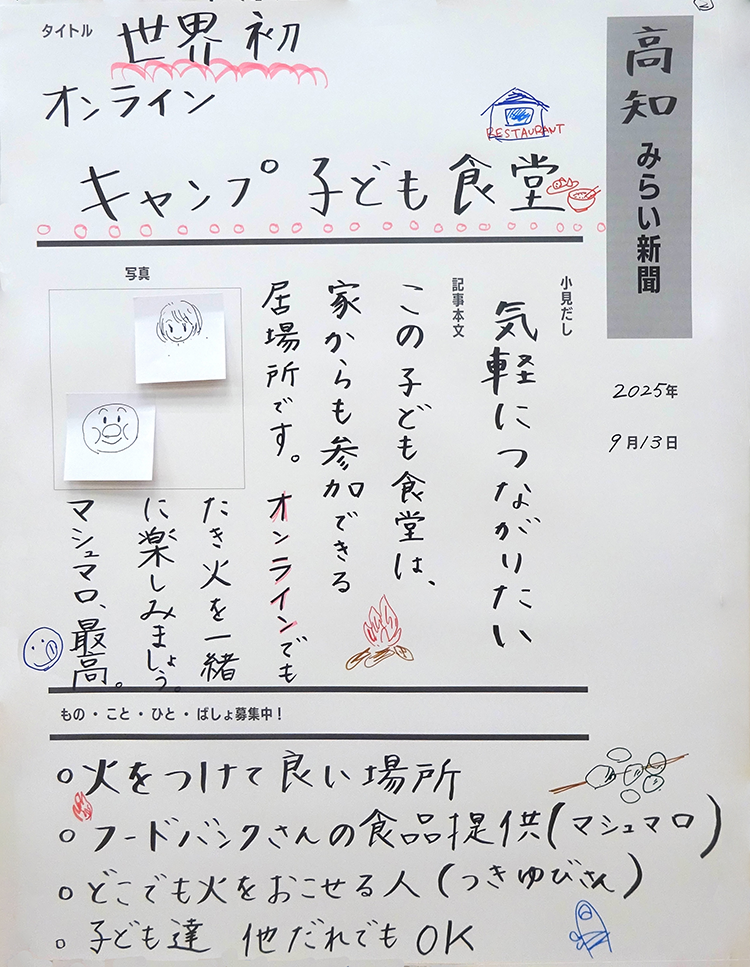 タイトル
世界初
オンライン
RESTAURANT
キャンプ子ども食堂
高知
みらい新聞
2025年
9月13日
小見だし
気軽につながりたい
記事本文
この子ども食堂は、
家からも参加できる
居場所です。オンラインでも
たき火を一緒
に楽しみましょう。
マシュマロ、最高。
写真
もの・こと・ひと・ばしょ募集中！
○火をつけて良い場所
○フードバンクさんの食品提供(マシュマロ)
○どこでも火をおこせる人(つきゆびさん)
○子ども達 他だれでもOK